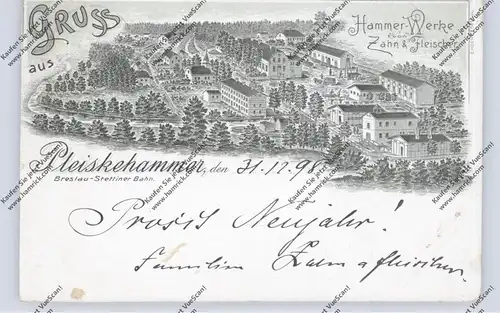 GRUSS
aus
Hammer-Werke
Zahn & Fleischer
Pleiskehammer, den 31.12.98
Breslau-Stettiner Bahn.
Prosit Neujahr!
Familien Zahn & Fleischer.
Kaufen Sie jetzt VueScan!
www.hamrick.com